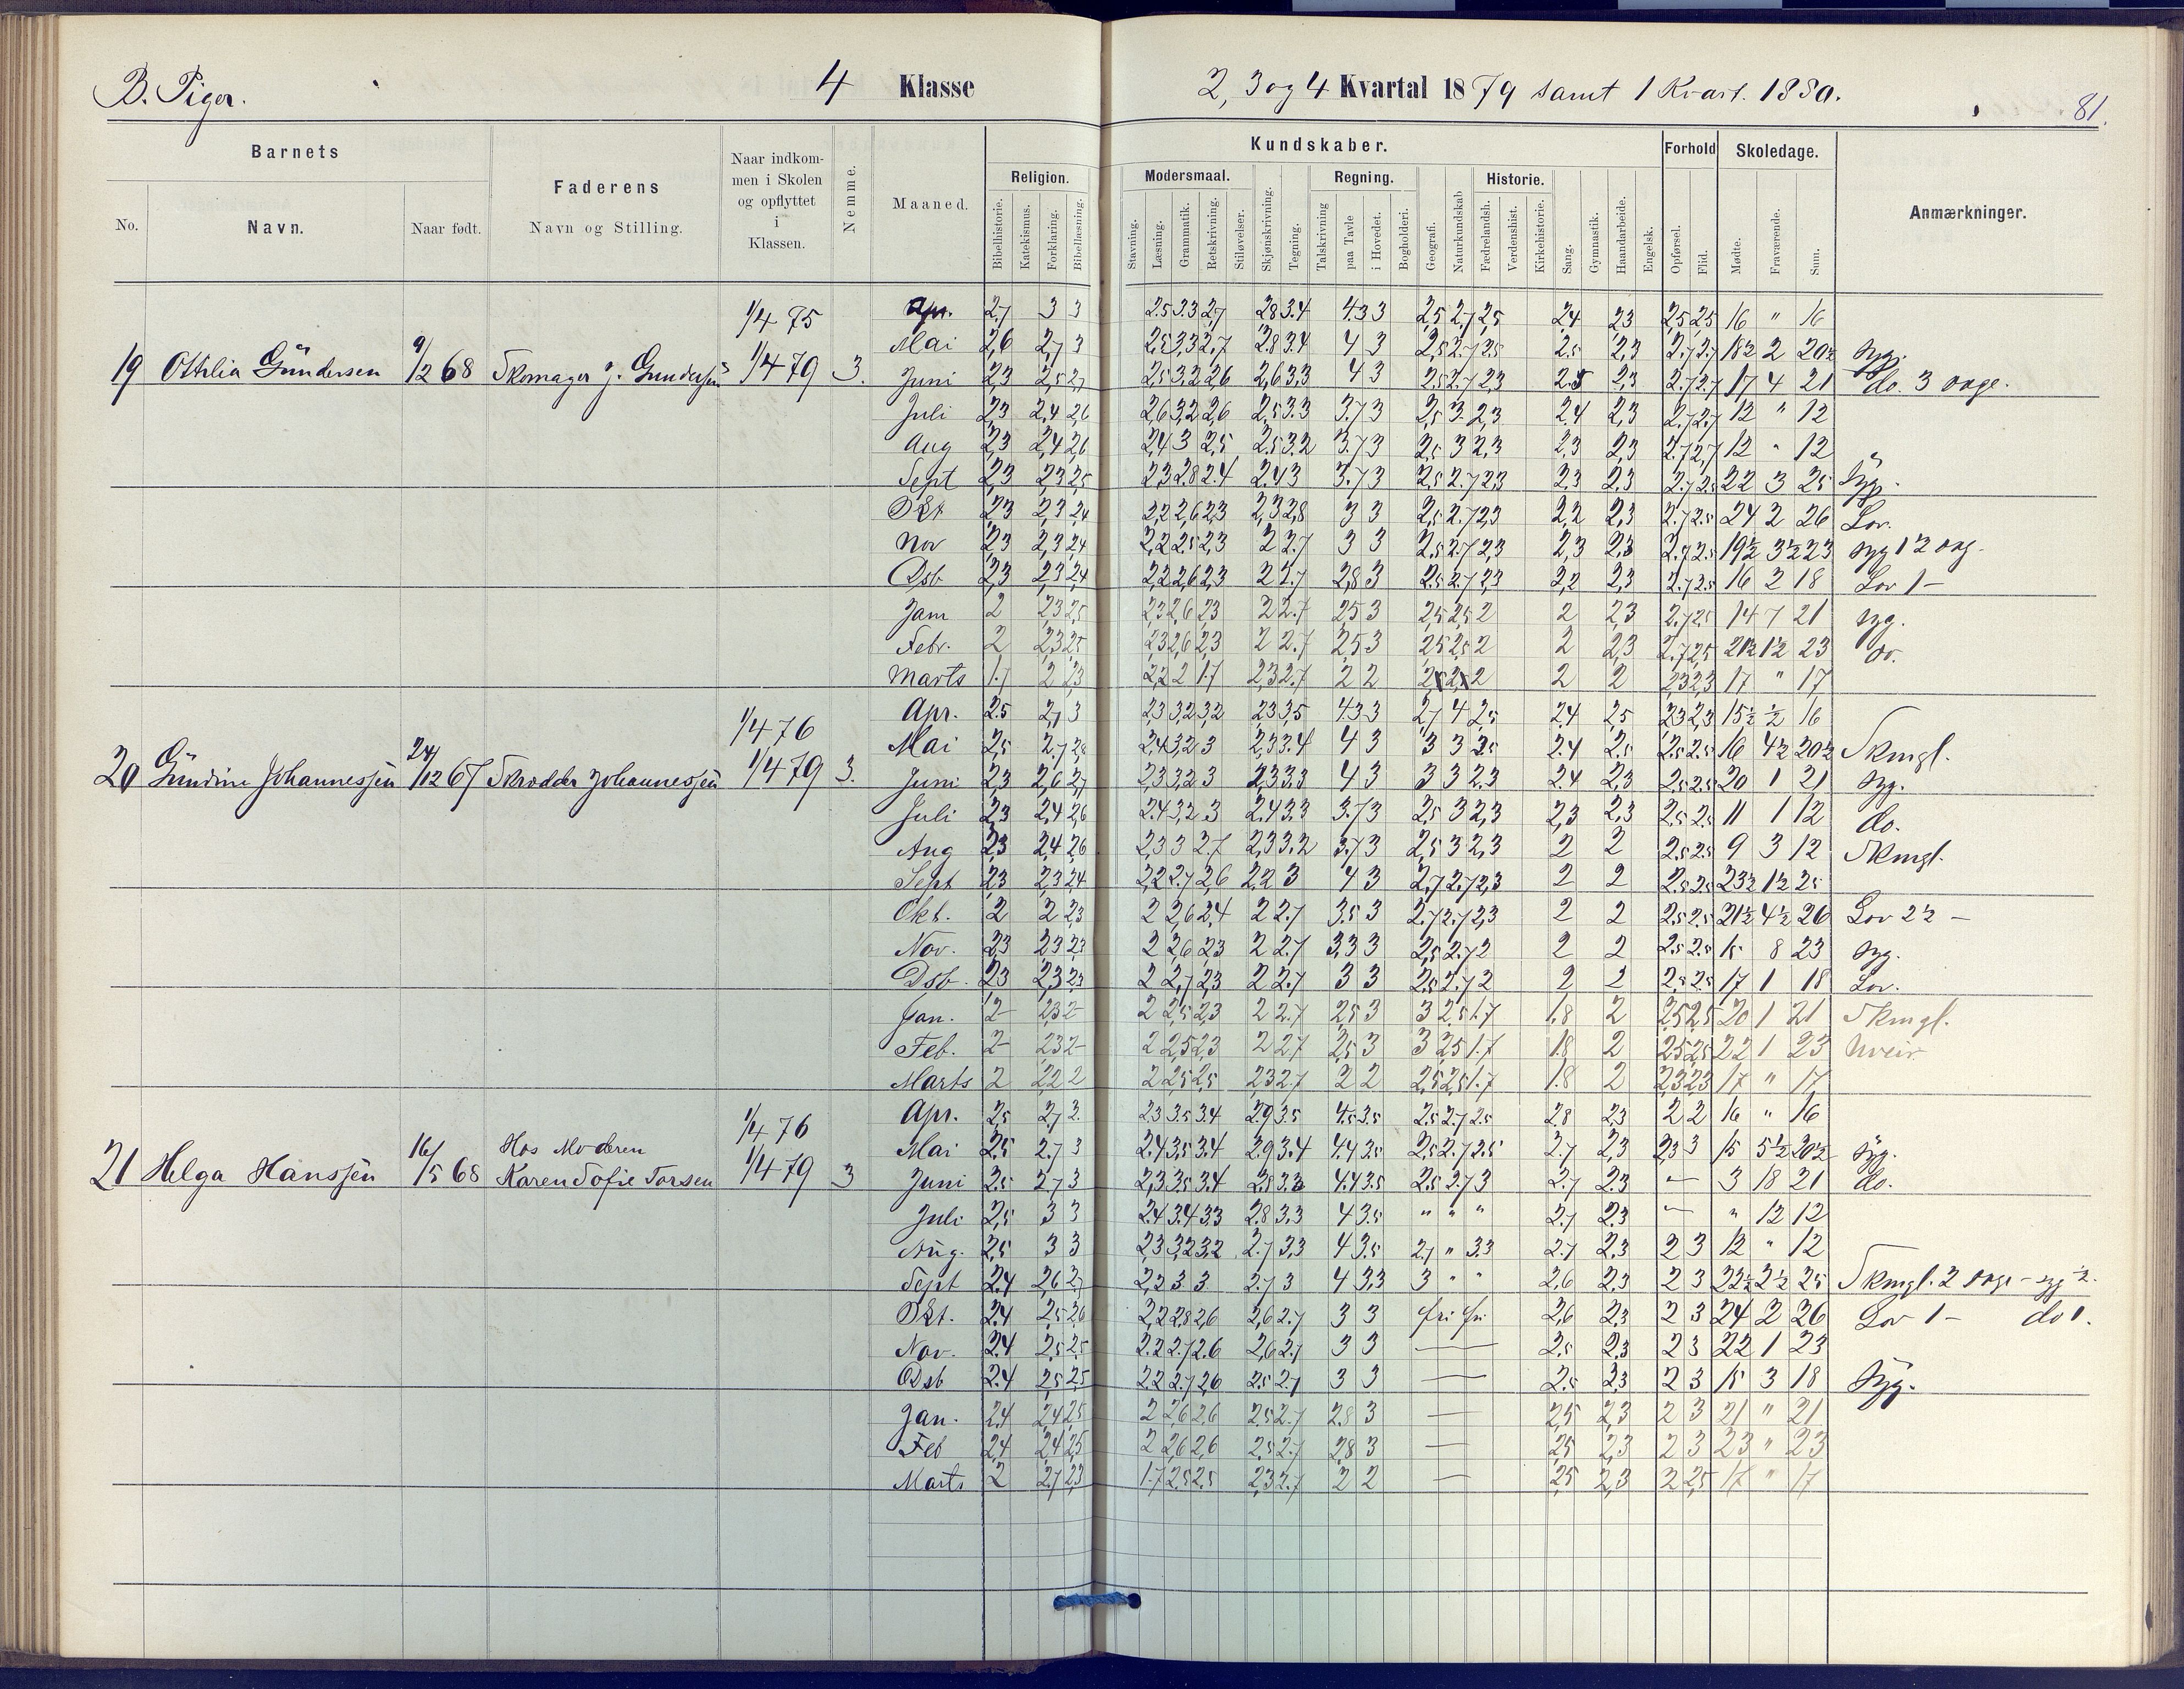 B. Piger.
4 Klasse
2, 3 og 4 Kvartal 1879 samt 1 Kvart. 1880.
81.
Barnets
Faderens
Naar indkommen i Skolen og opflyttet i Klassen.
Nemme.
Maaned.
Religion.
Kundskaber.
Modersmaal.
Regning.
Historie.
Forhold
Skoledage.
Anmærkninger.
No.
Navn.
Naar født.
Navn og Stilling.
Bibelhistorie. Katekismus. Forklaring. Bibellæsning.
Stavning. Læsning. Grammatik. Retskrivning. Stiløvelser. Skjønskrivning. Tegning. Talskrivning paa Tavle i Hovedet. Bogholderi. Geografi. Naturkundskab Fædrelandsh. Verdenshist. Kirkehistorie. Sang. Gymnastik. Haandarbeide. Engelsk. Opførsel. Flid. Mødte. Fraværende. Sum.
1/4 75
Apr. 2,7 3 3 2.5 3.3 2,7 2,8 3.4 4.3 3 2,5 2,7 2,5 2,4 2,3 2,5 2,5 16 " 16
Mai 2,6 2,7 3 2,5 3,3 2,7 2.8 3.4 4 3 2,5 2.7 2.5 2.5 2,3 2.7 2.7 18½ 2 20½ syg.
19 Othilia Gündersen 9/12 68 Skomager J. Gundersen 1/4 79 3.
Juni 2,3 2,5 2,7 2.5 3.2 2,6 2,6 3,3 4 3 2,5 2.7 2,3 2.5 2,3 2.7 2.7 17 4 21 do. 3 dage.
Juli 2,3 2,4 2,6 2,6 3,2 2,6 2,5 3.3 3.7 3 2,5 3 2,3 2.4 2,3 2.7 2.7 12 " 12
Aug 2,3 2,4 2,6 2,4 3 2,5 2.5 3.2 3.7 3 2,5 3 2,3 2,3 2,3 2.7 2,7 12 " 12
Sept 2,3 2,3 2,5 2,3 2.8 2.4 2.4 3 3.7 3 2,5 2.7 2,3 2,3 2.3 2.7 2.5 22 3 25 Syg.
Okt 2,3 2,3 2,4 2,2 2,6 2,3 2,3 2,8 3 3 2,5 2.7 2,3 2,2 2,3 2.7 2.5 24 2 26 Lov.
Nov 2,3 2,3 2,4 2,2 2.5 2,3 2 2.7 3 3 2.5 2.7 2,3 2,3 2,3 2.7 2.5 19½ 3½ 23 syg 1½ dag.
Dsb 2,3 2,3 2,4 2,2 2,6 2,3 2 2.7 2,8 3 2.5 2.7 2,3 2,2 2,3 2.7 2.5 16 2 18 Lov 1 —
Jam 2 2,3 2,5 2,3 2,6 2,3 2 2.7 2,5 3 2,5 2,5 2 2 2,3 2.7 2,5 14 7 21 syg.
Febr. 2 2,3 2,5 2,3 2,6 2,3 2 2.7 2,5 3 2,5 2,5 2 2 2,3 2.7 2,5 21½ 1½ 23
Marts 1.7 2 2,3 2,2 2 1.7 2,3 2.7 2 2 2 2 2 2,3 2,3 17 " 17
1/4 76
Apr. 2.5 2,7 3 2,3 3,2 3,2 2,3 3,5 4.3 3 2,7 4 2,5 2.4 2,5 2,3 2,3 15½ ½ 16
Mai 2,5 2.7 2,8 2,4 3,2 3 2,3 3.4 4 3 3 3 2.5 2.4 2.5 2.5 2.5 16 4½ 20½ Skmgl.
20 Gündine Johannessen 24/12 67 Skrædder Johannessen 1/4 79 3.
Juni 2,3 2,6 2,7 2,3 3,2 3 2,3 3,3 4 3 3 3 2.3 2.4 2,3 2.5 2.5 20 1 21 syg.
Juli 2,3 2,4 2,6 2.4 3,2 3 2.4 3.3 3.7 3 2,5 3 2,3 2,3 2,3 2.5 2.5 11 1 12 do.
Aug 2,3 2,4 2,6 2,3 3 2.7 2,3 3.2 3.7 3 2,5 3 2,3 2 2 2.5 2.5 9 3 12 Skmgl.
Sept 2,3 2,3 2,4 2,2 2.7 2,6 2,2 3 4 3 2,7 2.7 2,3 2 2 2.5 2.5 23½ 1½ 25
Okt. 2 2 2,3 2 2,6 2,4 2 2.7 3.5 3 2.7 2.7 2,3 2 2 2.5 2.5 21½ 4½ 26 Lov 2½ —
Nov. 2,3 2,3 2,3 2 2,6 2,3 2 2.7 3,3 3 2,5 2.7 2 2 2 2.5 2.5 15 8 23 syg.
Dsb. 2,3 2,3 2,3 2 2,7 2,3 2 2.7 3 3 2,5 2.7 2 2 2 2,5 2.5 17 1 18 Lov.
Jan. 2 2,3 2 2 2,5 2,3 2 2.7 2,5 3 3 2,5 1.7 1,8 2 2,5 2,5 20 1 21 Skmgl.
Feb. 2 2,3 2 2 2,5 2,3 2 2,7 2,5 3 3 2,5 1.7 1.8 2 2,5 2,5 22 1 23
Marts 2 2,2 2 2 2,5 2,5 2,3 2.7 2 2 2,5 2,5 1.7 1.8 2 2,3 2,3 17 " 17
1/4 76
Apr. 2,5 2,7 3 2,3 3.5 3.4 2.9 3.5 4.5 3.5 2.5 2.7 2.5 2.8 2,3 2 2 16 " 16
Hos Moderen
Mai 2.5 2.7 3 2.4 3,5 3.4 2.9 3.4 4.4 3.5 2.5 2.7 2.5 2.7 2,3 2,3 3 15 5½ 20½ Syg.
21 Helga Hanssen 16/5 68 Karen Sofie Torsen 1/4 79 3
Juni 2.5 2.7 3 2,3 3.5 3.4 2.8 3.3 4.4 3.5 2.5 2.7 3 2.7 2.3 — 3 18 21 do.
Juli 2,5 3 3 2.4 3.4 3.3 2.8 3.3 4 3.5 " " " 2.7 2.3 — " 12 12
Aug. 2,5 3 3 2,3 3,2 3,2 2.7 3,3 4 3.5 2.7 " 3.3 2.7 2,3 2 3 12 " 12
Sept 2.4 2,6 2.7 2,2 3 3 2.7 3 4 3,3 3 " " 2,6 2,3 2 3 22½ 2½ 25 Skmgl. 2 dage — syg ½.
Okt. 2.4 2,5 2,6 2,2 2,8 2,6 2,6 2.7 3 3 fri fri 2,6 2,3 2 3 24 2 26 Lov 1 — do 1.
Nov. 2.4 2,5 2,5 2.2 2.7 2.6 2,6 2.7 3 3 — 2.5 2,3 2 3 22 1 23
Dsb 2.4 2,5 2,5 2.2 2.7 2,6 2.5 2.7 3 3 — 2.5 2,3 2 3 15 3 18 Syg.
Jan. 2.4 2,4 2,5 2 2,6 2,6 2,5 2.7 2.8 3 — 2,5 2,3 2 3 21 " 21
Feb 2,4 2,4 2,5 2 2,6 2,6 2.5 2.7 2,8 3 — 2,5 2,3 2 3 23 " 23
Marts 2 2,7 2,3 1.7 2.5 2.5 2,3 2.7 2 2 — 2,5 2,3 2 2,5 17 " 17